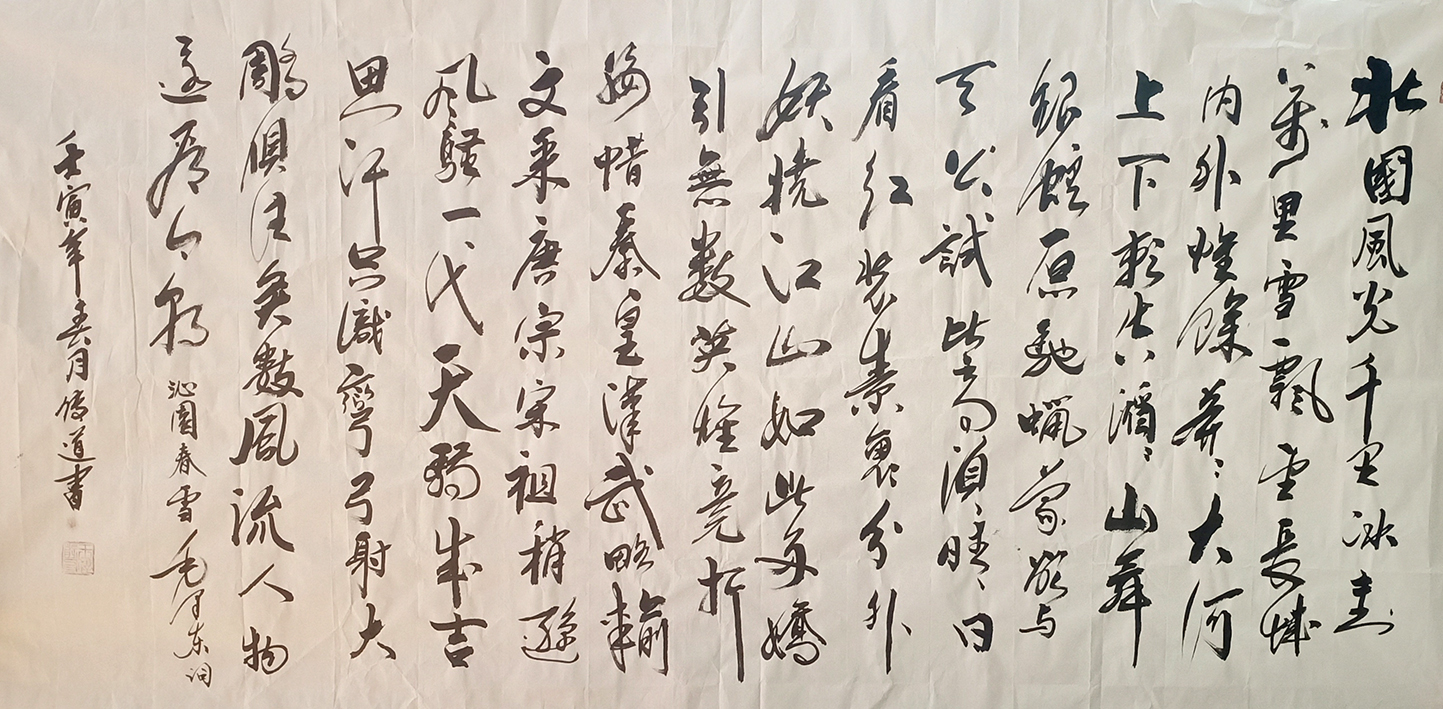 北國風光千里冰封
萬里雪飄望長城
内外惟餘莽々大河
上下頓失滔々山舞
銀蛇原馳蠟象欲与
天公試比高須晴日
看红装素裹分外
妖嬈江山如此多嬌
引無數英雄竞折
腰惜秦皇漢武略輸
文采唐宗宋祖稍遜
风騷一代天驕成吉
思汗只識彎弓射大
雕俱往矣數風流人物
還看今朝 沁園春雪 毛泽东词
壬寅年春月傳道書